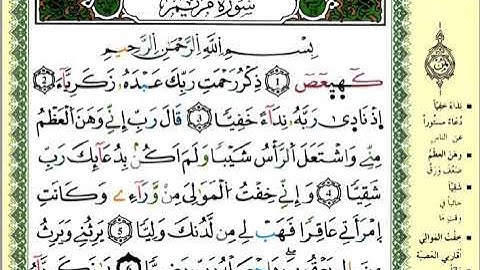 سُورَةُ مَرْيَمَ
بِسْمِ اللَّهِ الرَّحْمَٰنِ الرَّحِيمِ
كٓهيعٓصٓ ١ ذِكْرُ رَحْمَتِ رَبِّكَ عَبْدَهُ زَكَرِيَّآءَ ٢
إِذْ نَادَىٰ رَبَّهُ نِدَآءً خَفِيًّا ٣ قَالَ رَبِّ إِنِّي وَهَنَ الْعَظْمُ
مِنِّي وَاشْتَعَلَ الرَّأْسُ شَيْبًا وَلَمْ أَكُنْ بِدُعَآئِكَ رَبِّ
شَقِيًّا ٤ وَإِنِّي خِفْتُ الْمَوَالِيَ مِنْ وَرَآءِي وَكَانَتِ
امْرَأَتِي عَاقِرًا فَهَبْ لِي مِنْ لَدُنْكَ وَلِيًّا ٥ يَرِثُنِي وَيَرِثُ
مِنْ آلِ يَعْقُوبَ وَاجْعَلْهُ رَبِّ رَضِيًّا ٦ يَا زَكَرِيَّآ
نِدَاءً خَفِيًّا
دُعَاءً مَسْتُورًا
عن الناس
وَهَنَ العَظْمُ
ضَعُفَ وَرَقَّ
شَقِيًّا
خائبًا في
وقت ما
خِفْتُ المَوَالِيَ
أقاربي العَصَبَة